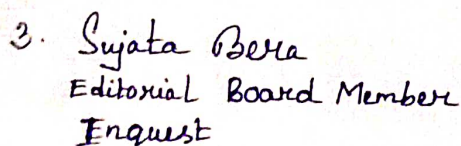 3. Sujata Bera
Editorial Board Member
Inquest